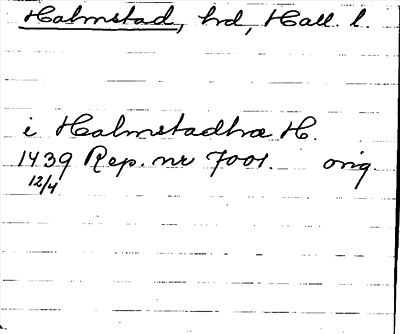 Halmstad, hd, Hall. l.
i Halmstadhæ H.
1439 Rep. nr 7001. orig.
12/4